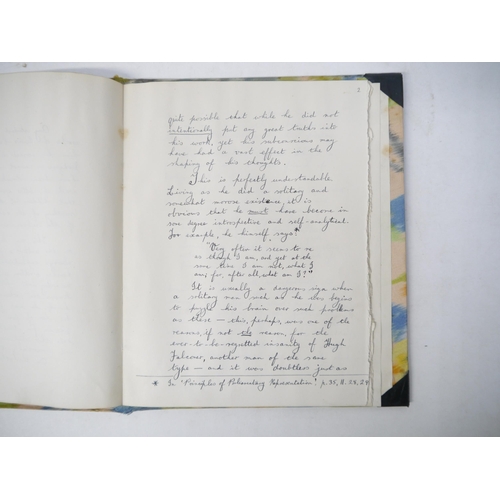 2
quite possible that while he did not
intentionally put any great truths into
his work, yet his subconscious may
have had a vast effect in the
shaping of his thoughts.
This is perfectly understandable.
Living as he did a solitary and
somewhat morose existence, it is
obvious that he must have become in
some degree introspective and self-analytical.
For example, he himself says*
"Very often it seems to me
as though I am, and yet at the
same time I am not, what I
am; for, after all, what am I?"
It is usually a dangerous sign when
a solitary man such as he was begins
to puzzle his brain over such problems
as these — this, perhaps, was one of the
reasons, if not the reason, for the
ever-to-be-regretted insanity of Hugh
Falconer, another man of the same
type — and it was doubtless just as
* In 'Principles of Parliamentary Representation', p. 35, ll. 28, 29